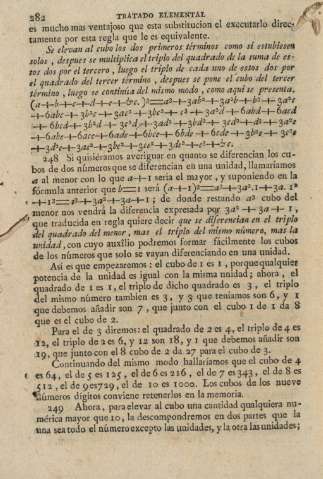 282 TRATADO ELEMENTAL
es mucho mas ventajoso que esta substitucion el executarlo direc-
tamente por esta regla que le es equivalente.
Se elevan al cubo los dos primeros términos como si estubiesen
solos, despues se multiplica el triplo del quadrado de la suma de es-
tos dos por el tercero, luego el triplo de cada uno de estos dos por
el quadrado del tercer término, despues se pone el cubo del tercer
término, luego se continúa del mismo modo, como aqui se presenta.
248 Si quisiéramos averiguar en quanto se diferencian los cu-
bos de dos números que se diferencian en una unidad, llamariamos
a al menor con lo que a+1 seria el mayor, y suponiendo en la
fórmula anterior que b=1 será (a+1)³=a³+3a².1+3a. 1²
+1³=a³+3a²+3a+1; de donde restando a³ cubo del
menor nos vendrá la diferencia expresada por 3a²+3a+1,
que traducida en regla quiere decir que se diferencian en el triplo
del quadrado del menor, mas el triplo del mismo número, mas la
unidad, con cuyo auxîlio podremos formar facilmente los cubos
de los números que solo se vayan diferenciando en una unidad.
Así es que empezaremos: el cubo de 1 es 1, porque qualquier
potencia de la unidad es igual con la misma unidad; ahora, el
quadrado de 1 es 1, el triplo de dicho quadrado es 3, el triplo
del mismo número tambien es 3, y 3 que teniamos son 6, y 1
que debemos añadir son 7, que junto con el cubo 1 de 1 da 8
que es el cubo de 2.
Para el de 3 diremos: el quadrado de 2 es 4, el triplo de 4 es
12, el triplo de 2 es 6, y 12 son 18, y 1 que debemos añadir son
19, que junto con el 8 cubo de 2 da 27 para el cubo de 3.
Continuando del mismo modo hallariamos que el cubo de 4
es 64, el de 5 es 125, el de 6 es 216, el de 7 es 343, el de 8 es
512, el de 9 es 729, el de 10 es 1000. Los cubos de los nueve
números dígitos conviene retenerlos en la memoria.
249 Ahora, para elevar al cubo una cantidad qualquiera nu-
mérica mayor que 10, la descompondremos en dos partes que la
una sea todo el número excepto las unidades, y la otra las unidades;